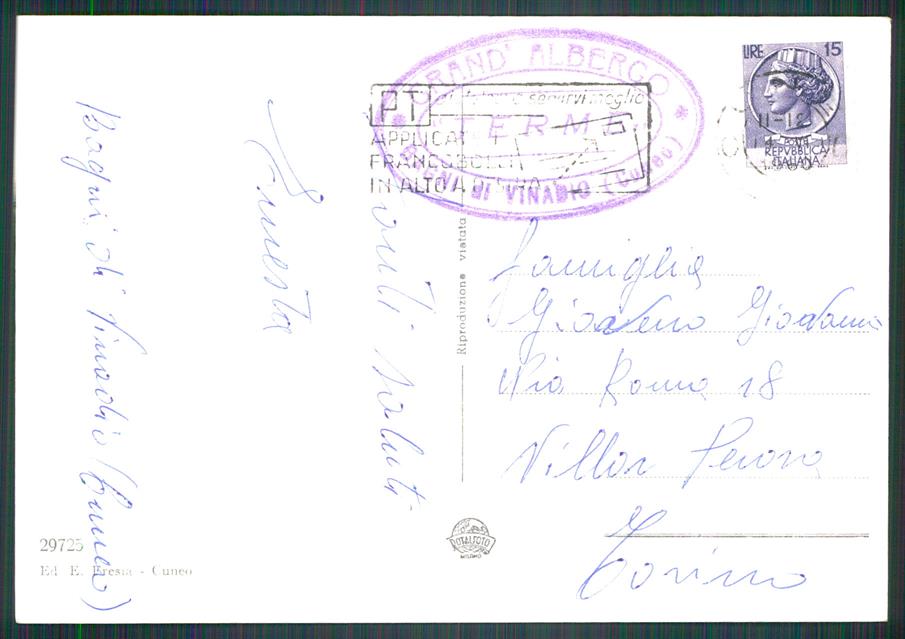 Bagni di Vinadio (Cuneo)
Tanti saluti
Ernesta
GRAND' ALBERGO
TERME
BAGNI DI VINADIO (Cuneo)
PT
servirvi meglio
APPLICATE I
FRANCOBOLLI
IN ALTO A DESTRA
LIRE 15
POSTE
REPVBBLICA
ITALIANA
11-12
Riproduzione vietata
Famiglia
Giovanni
Via Roma 18
Villar Perosa
Torino
29725
Ed. E. Fresia - Cuneo
TOTALFOTO
MILANO